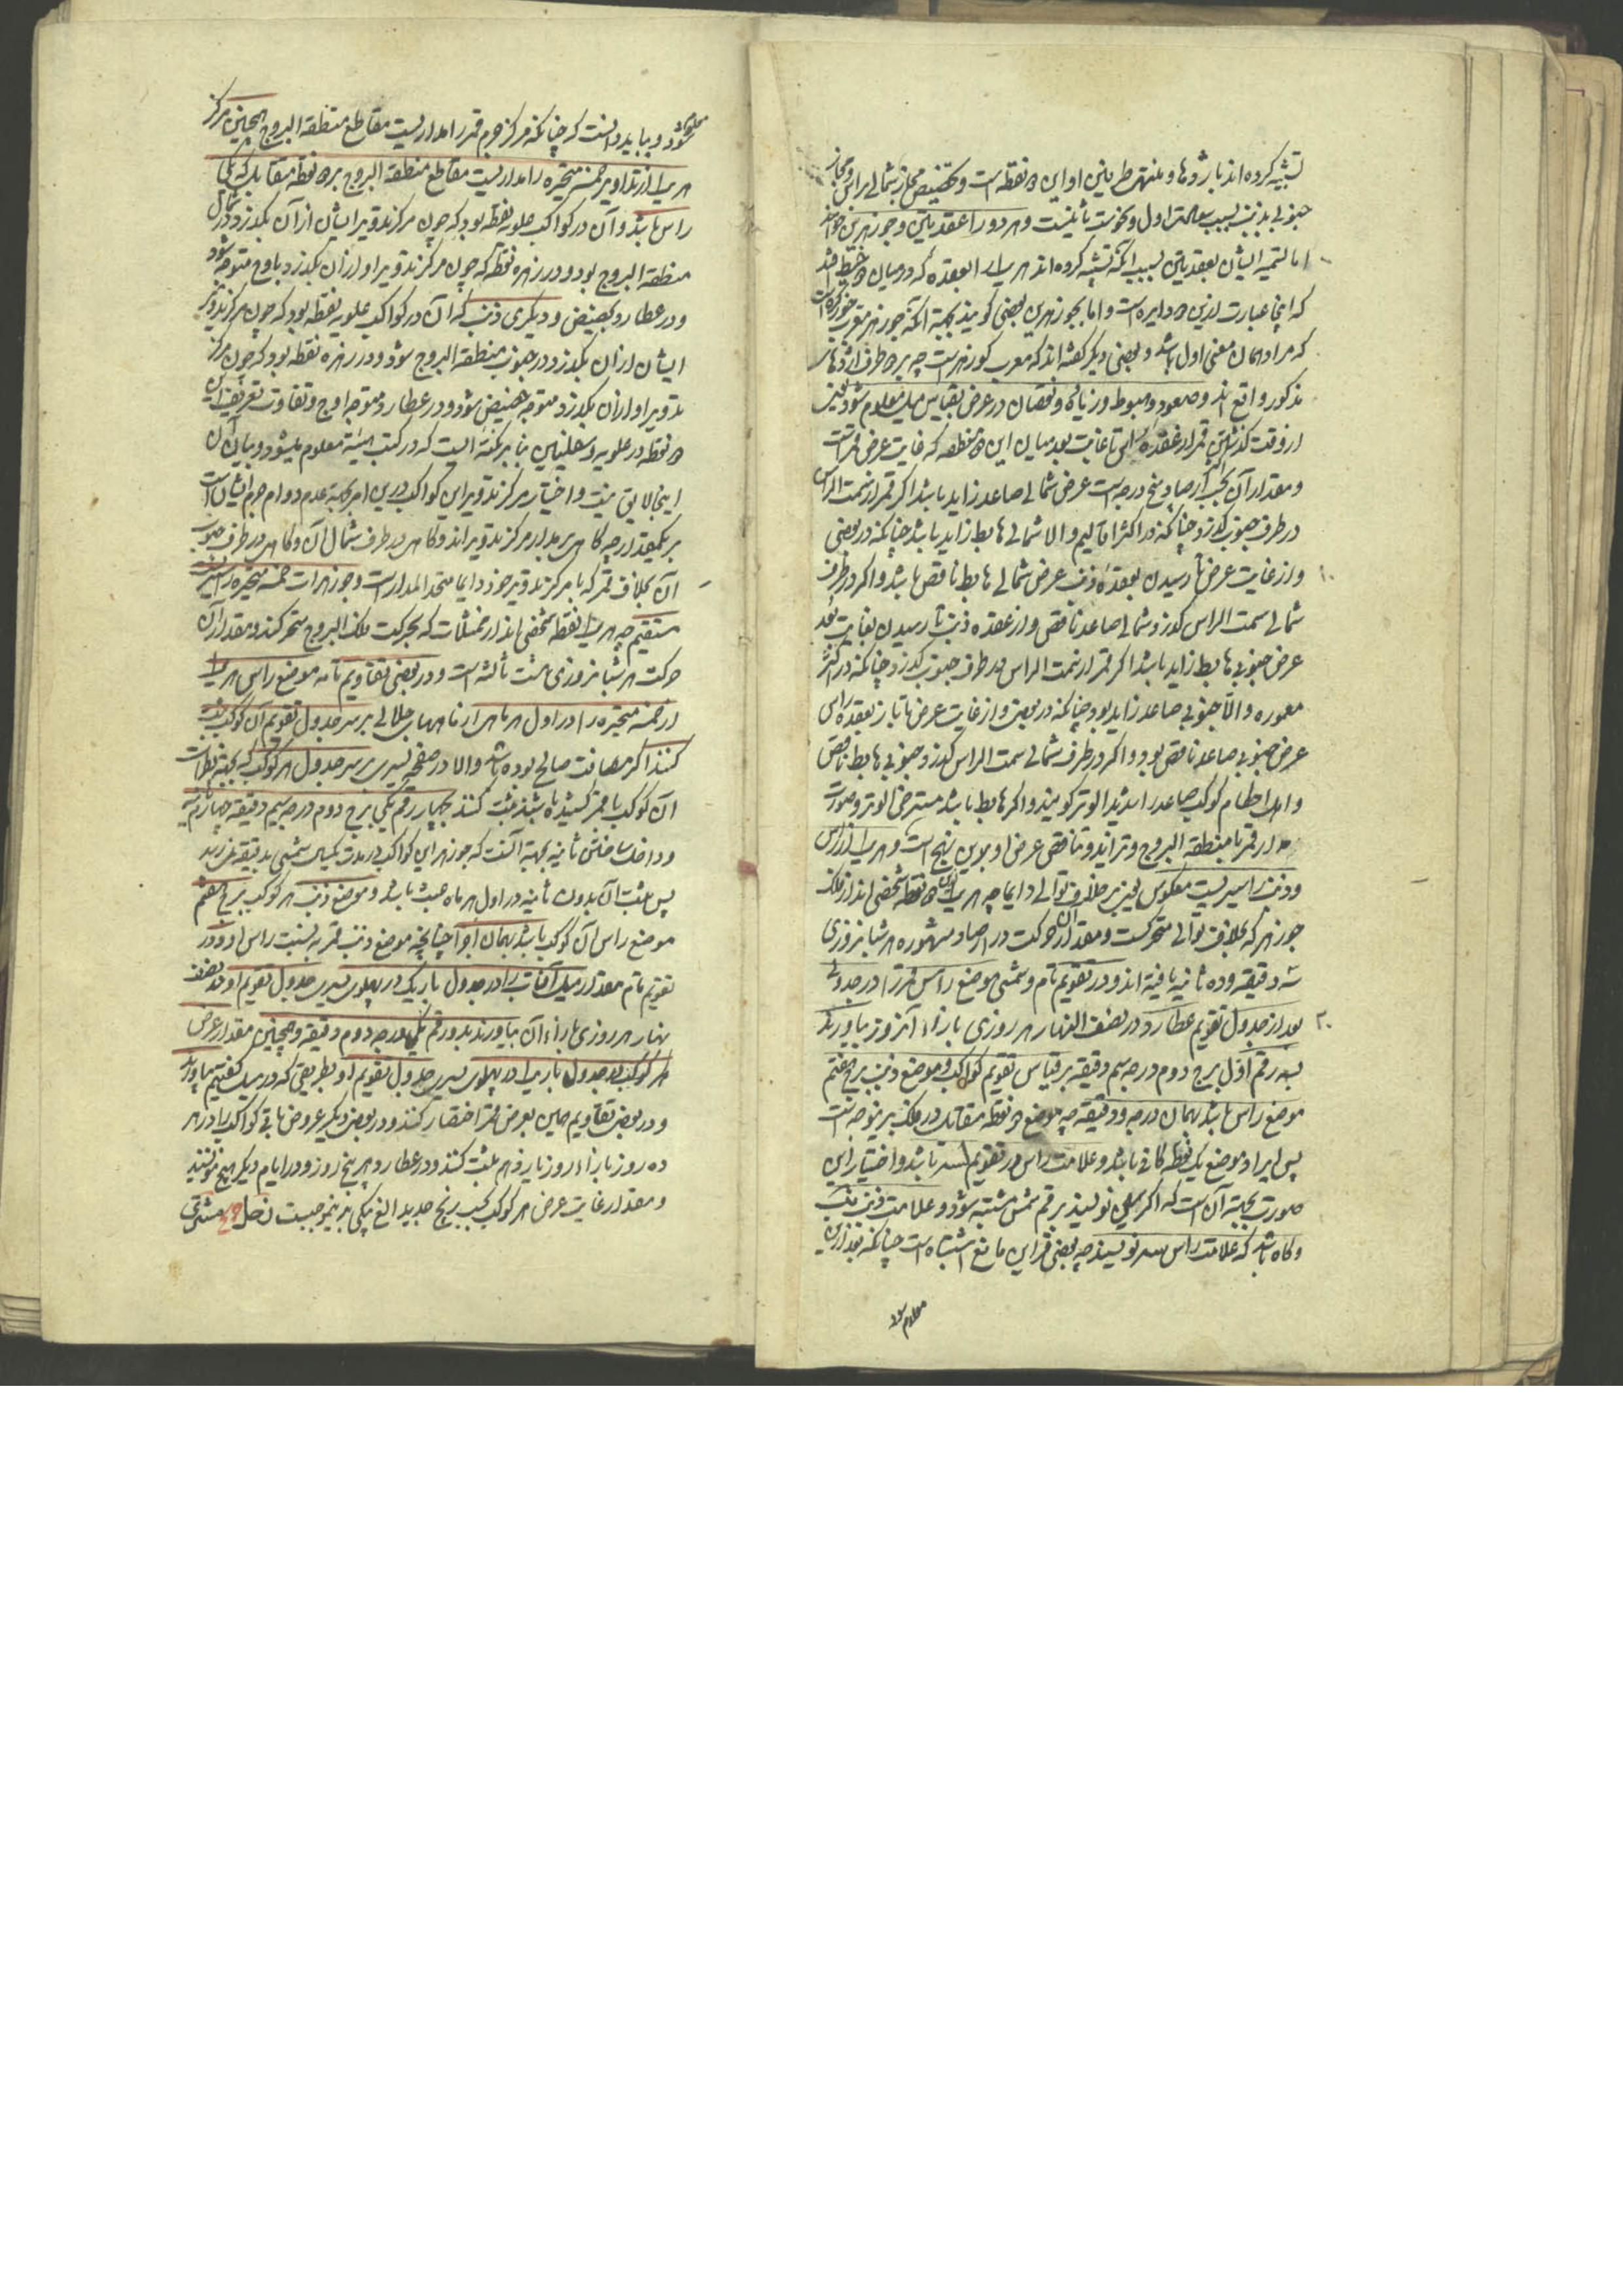 تشبیه کرده اند باژدها و ملتقی طرفین او این دو نقطه است و تخصیص مجاز شمالی براس و مجاز
جنوبی بذنب بسبب سعادت اول و نحوست ثانیست و هر دو را عقدتین و جوزهرین خوانند
اما تسمیه ایشان بعقدتین بسبب آنکه تشبیه کرده اند هر یک را بعقده که در میان دو خیط افتد
که اینجا عبارت ازین دو دایره است و اما بجوزهرین بعضی گویند بجهة آنکه جوزهر معرب
که مراد همان معنی اول باشد و بعضی دیگر گفته اند که معرب گوزهر است چه بر دو طرف اژدهای
مذکور واقع اند و صعود و هبوط و زیادة و نقصان در عرض بقیاس میل معلوم شود لیکن
از وقت گذشتن قمر از عقده راس تا غایت بعد میان این دو منطقه که غایت عرض قمر است
و مقدار آن بحسب ارصاد پنج درجه است عرض شمالی صاعد زاید باشد اگر قمر از سمت الراس
در طرف جنوب گذرد چنانکه در اکثر اقالیم و الا شمالی هابط زاید باشد چنانکه در بعضی
و از غایت عرض تا رسیدن بعقده ذنب عرض شمالی هابط ناقص باشد و اگر در طرف
شمالی سمت الراس گذرد شمالی صاعد ناقص و از عقده ذنب تا رسیدن بغایت بعد
عرض جنوبی هابط زاید باشد اگر قمر از سمت الراس در طرف جنوب گذرد چنانکه در اکثر
معموره و الا جنوبی صاعد زاید بود چنانکه در بعضی و از غایت عرض تا باز بعقده راس
عرض جنوبی صاعد ناقص بود و اگر در طرف شمالی سمت الراس گذرد جنوبی هابط ناقص
و اهل احکام کوکب صاعد را شدید الوتر گویند و اگر هابط باشد مسترخی الوتر و صورت
مدار قمر با منطقة البروج و تزاید و تناقص عرض او برین نهج است و هر یک از راس
و ذنب را سیریست معکوس یعنی بر خلاف توالی دایما چه هر یک ازین دو نقطه شخصی اند از فلک
جوزهر که بخلاف توالی متحرکست و مقدار آن حرکت در ارصاد مشهوره هر شبانروزی
سه دقیقه و ده ثانیه یافته اند و در تقویم تام و شمسی موضع راس قمر را در جدولی
بعد از جدول تقویم عطارد در نصف النهار هر روزی بازاء آنروز بیاورند
بسه رقم اول برج دوم درجه سیم دقیقه بر قیاس تقویم کواکب و موضع ذنب برج هفتم
موضع راس باشد بهمان درجه و دقیقه چه موضع دو نقطه متقابل در فلک برینوجه است
پس ایراد موضع یک نقطه کافی باشد و علامت راس در تقویم باشد و اختیار این
صورت بجهة آن است که اگر نویسند برقم شمس مشتبه شود و علامت ذنب
و گاه باشد که علامت راس سر نویسند چه بعضی قراین مانع اشتباه است چنانکه بعد ازین
معلوم شود
معلوم شود و بباید دانست که چنانکه مرکز جرم قمر را مداریست مقاطع منطقة البروج همچنین مرکز
هر یک از تداویر خمسه متحیره را مداریست مقاطع منطقة البروج بر دو نقطه متقابل که یکی
راس باشد و آن در کواکب علویه نقطه بود که چون مرکز تدویر ایشان از آن بگذرد در شمال
منطقة البروج بود و در زهره نقطه که چون مرکز تدویر او از آن بگذرد باوج متوجه شود
و در عطارد بحضیض و دیگری ذنب که آن در کواکب علویه نقطه بود که چون مرکز تدویر
ایشان از آن بگذرد در جنوب منطقة البروج شود و در زهره نقطه بود که چون مرکز
تدویر او از آن بگذرد متوجه حضیض شود و در عطارد متوجه اوج و تفاوت تعریف این
دو نقطه در علویه و سفلیین بنا بر نکته ایست که در کتب هیئة معلوم میشود و بیان آن
اینجا لایق نیست و اختیار مرکز تدویر این کواکب درین امر بجهة عدم دوام جرم ایشان است
بر یکمقدار چه گاهی بر مدار مرکز تدویراند و گاهی در طرف شمال آن و گاهی در طرف جنوب
آن بخلاف قمر که با مرکز تدویر خود دایما متحد المدار است و جوزهرات خمسه متحیره را سیر
مستقیم چه هر یک نقطه شخصی اند از ممثلات که بحرکت فلک البروج متحرکند و مقدار آن
حرکت هر شبانروزی هشت ثالثه است و در بعضی تقاویم تامه موضع راس هر یک
از خمسه متحیره را در اول هر ماهی از ماههای جلالی بر سر جدول تقویم آن کوکب ثبت
کنند اگر مسافت صالح بوده باشد والا در صفحه یسری بر سر جدول هر کوکب که بجهة نظرات
آن کوکب با قمر کشیده باشند ثبت کنند بچهار رقم یکی برج دوم درجه سیم دقیقه چهارم ثانیه
و داخل ساختن ثانیه بجهة آنست که جوزهر این کواکب در مدت یکسال شمسی بدقیقه نمیرسد
پس ثبت آن بدون ثانیه در اول هر ماه عبث باشد و موضع ذنب هر کوکب برج هفتم
موضع راس آن کوکب باشد بهمان اجزا چنانچه موضع ذنب قمر به نسبت راس او و در
تقویم تام مقدار میل آفتاب را در جدول باریک در پهلوی یسری جدول تقویم او در نصف
نهار هر روزی بازاء آن بیاورند بدو رقم یکی درجه دوم دقیقه و همچنین مقدار عرض
هر کوکب در جدول باریک در پهلوی یسری جدول تقویم او بطریقی که در میل گفتیم بیاورند
و در بعضی تقاویم همین بعرض قمر اختصار کنند و در بعضی دیگر عروض باقی کواکب را در هر
ده روز بازاء روز یازدهم ثبت کنند و در عطارد بهر پنج روز و در ایام دیگر هیچ ننویسند
و مقدار غایت عرض هر کوکب بحسب زیج جدید الغ بیکی بدینموجبست زحل مشتری